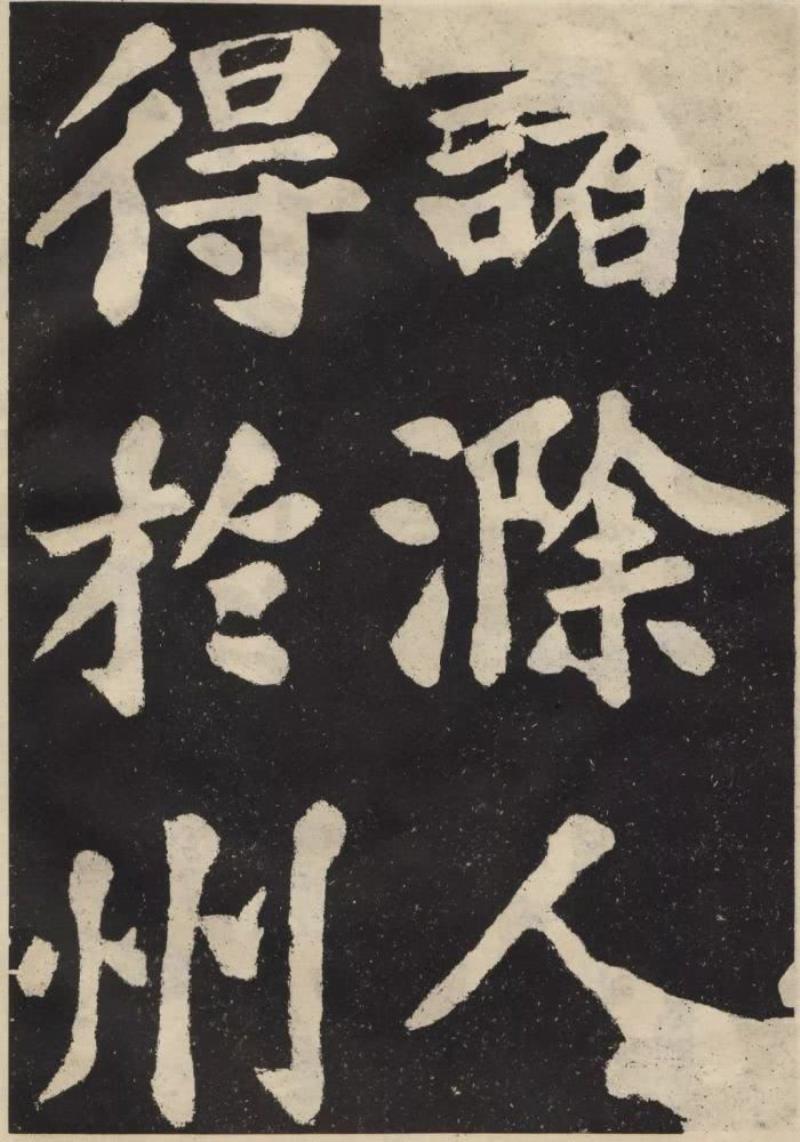 諸滁人
得於州